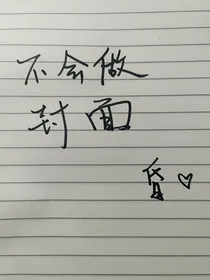 不会做
封面
贷♡